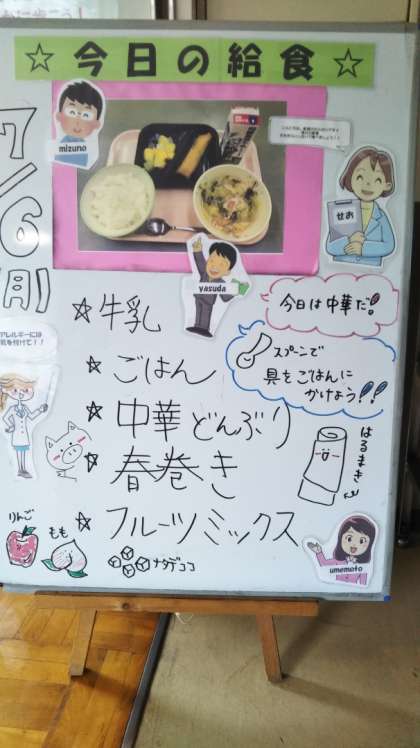 ☆今日の給食☆
7/6
(月)
mizuno
せお
yasuda
☆牛乳
☆ごはん
☆中華どんぶり
☆春巻き
☆フルーツミックス
今日は中華だ!
スプーンで
具をごはんに
かけよう!!
アレルギーには
気を付けて!!
はるまき
りんご
もも
ナタデココ
umemoto